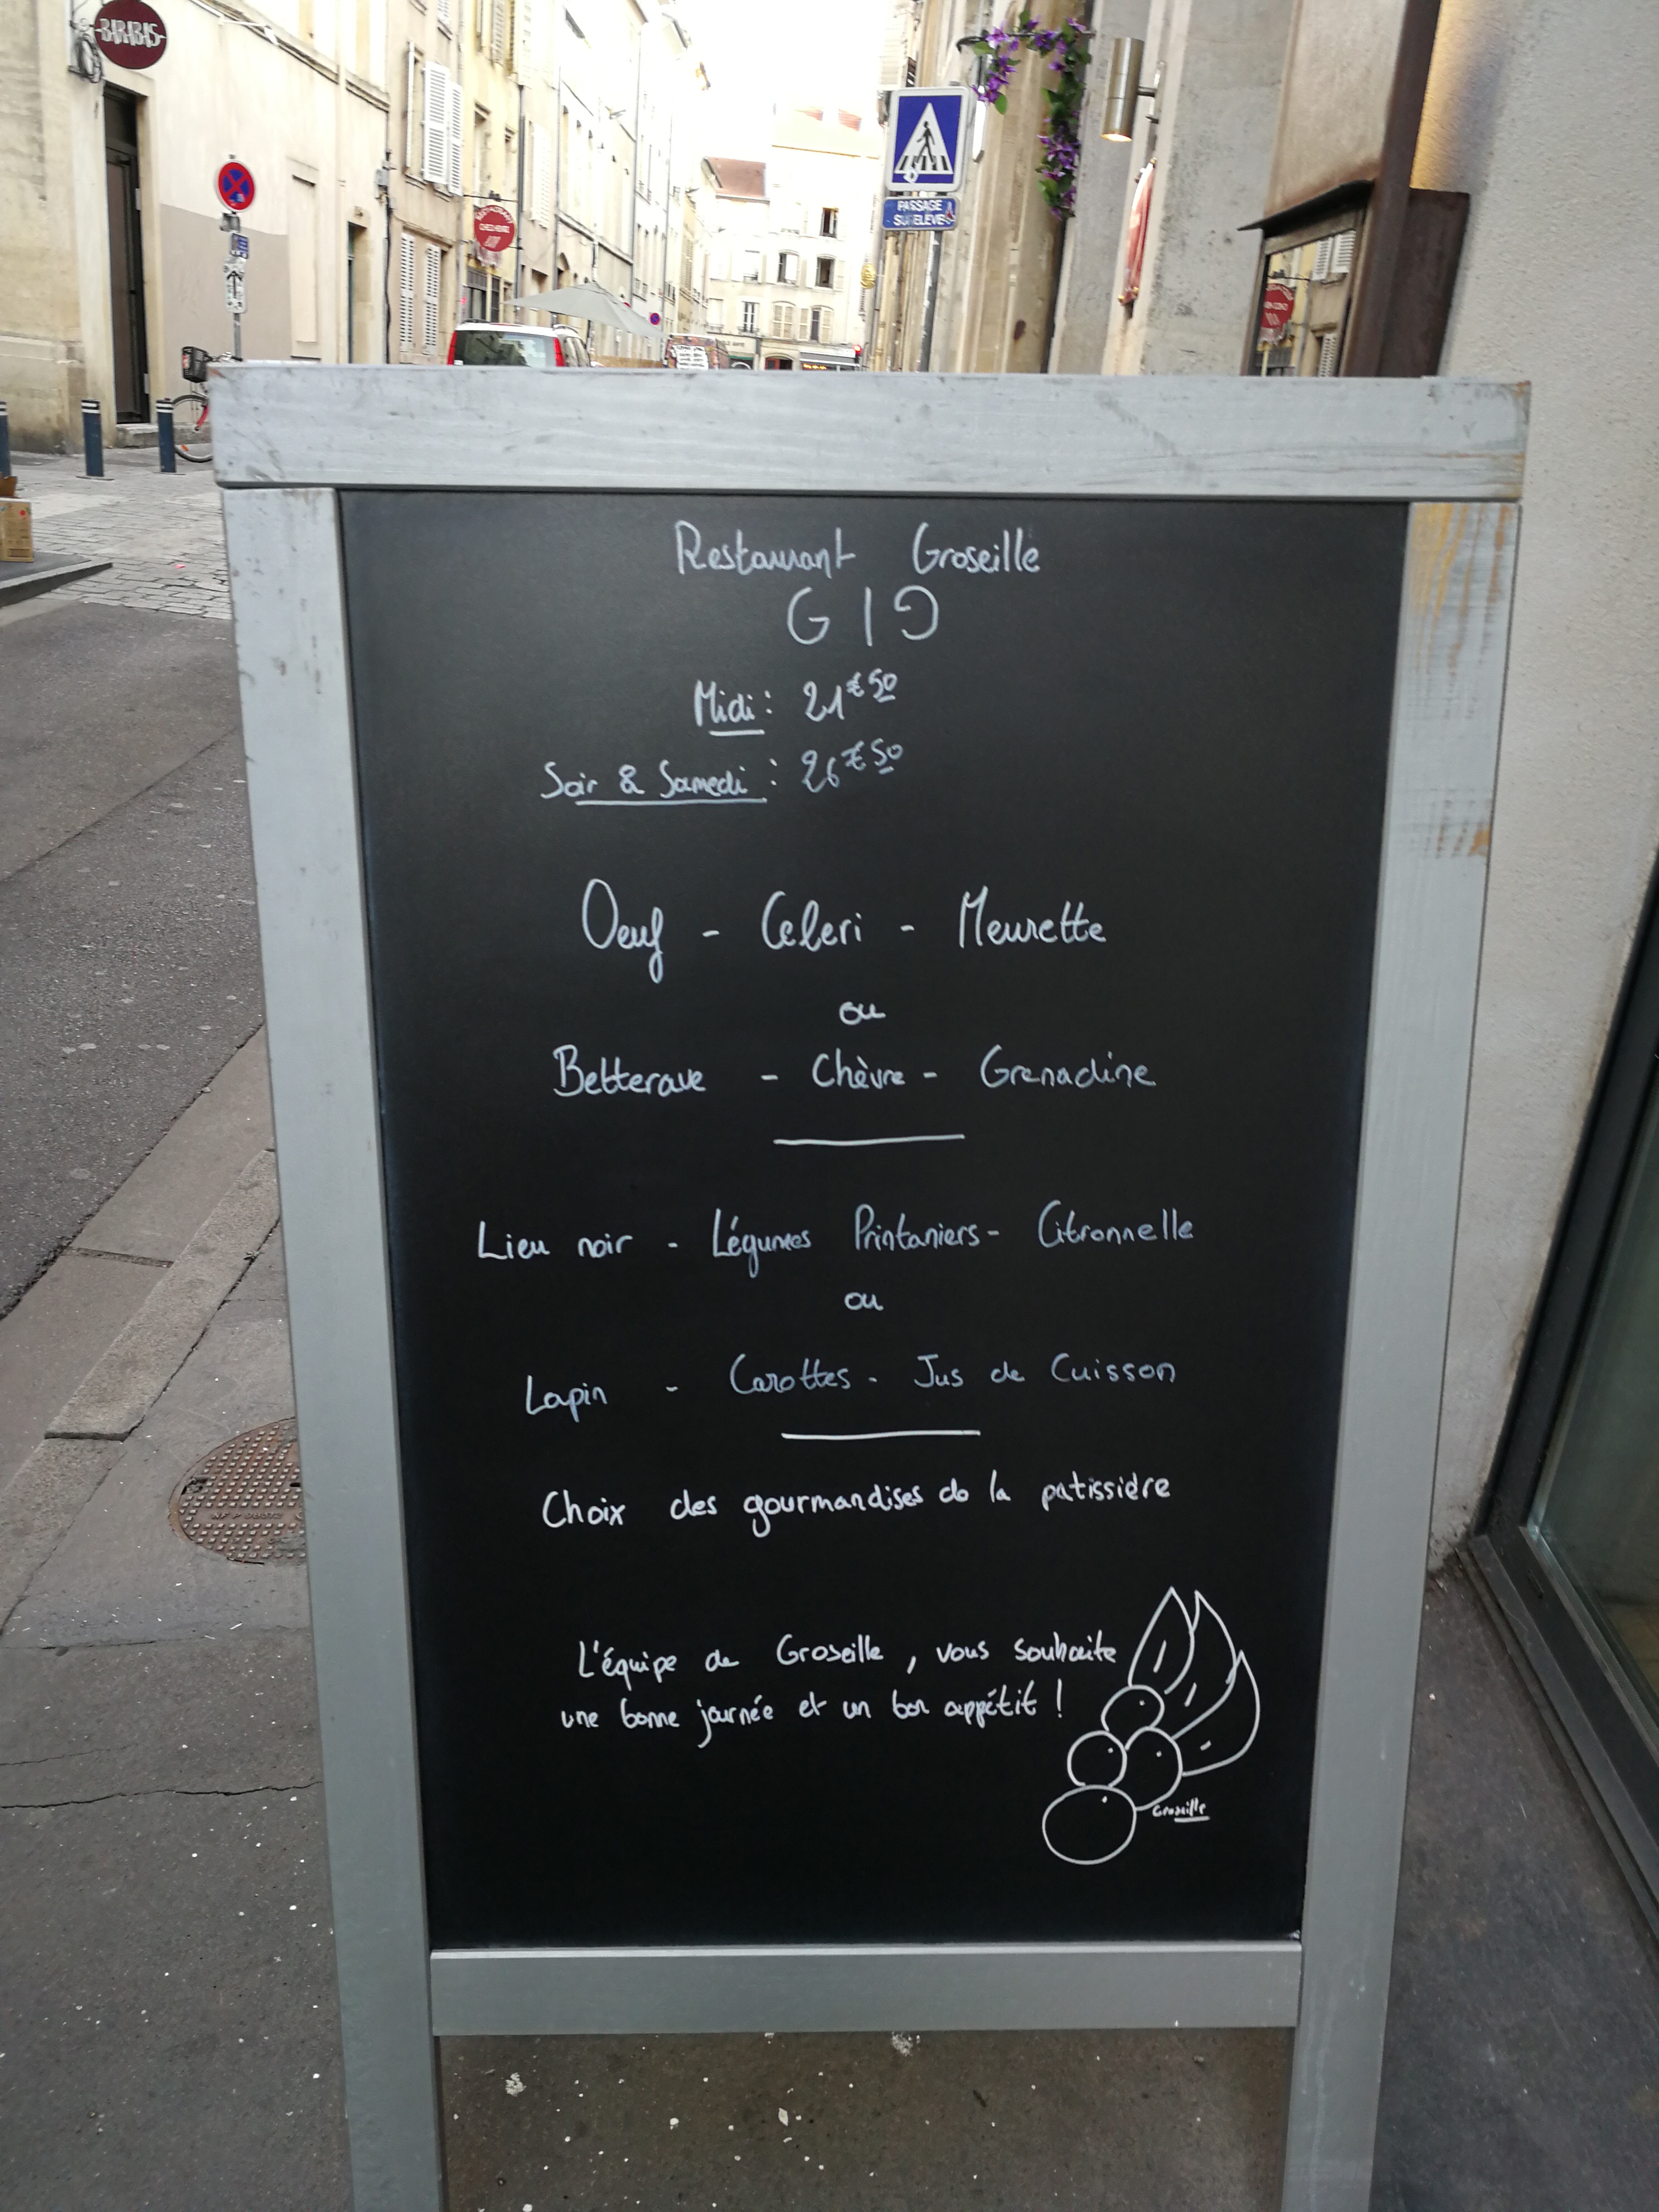 BARABAS
PASSAGE
SURELEVE
Restaurant Groseille
G I G
Midi : 21€50
Soir & Samedi : 26€50
Oeuf - Celeri - Meurette
ou
Betterave - Chèvre - Grenadine
Lieu noir - Légumes Printaniers - Citronnelle
ou
Lapin - Carottes - Jus de Cuisson
Choix des gourmandises de la patissière
L'équipe de Groseille, vous souhaite
une bonne journée et un bon appétit !
Groseille